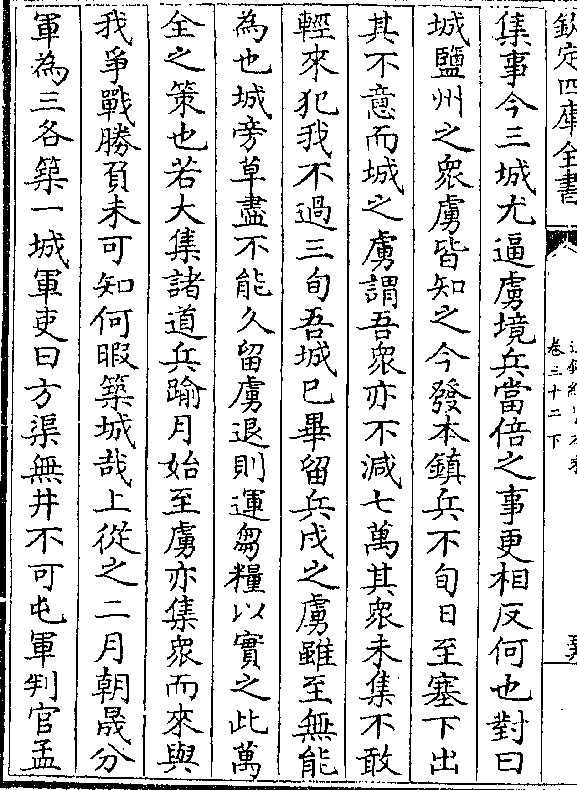 欽定四庫全書
卷三十二下
集事今三城尤逼虜境兵當倍之事更相反何也對曰
城鹽州之衆虜皆知之今發本鎮兵不旬日至塞下出
其不意而城之虜謂吾衆亦不減七萬其衆未集不敢
輕來犯我不過三旬吾城已畢留兵戍之虜雖至無能
為也城旁草盡不能久留虜退則運芻糧以實之此萬
全之策也若大集諸道兵踰月始至虜亦集衆而來與
我爭戰勝負未可知何暇築城哉上從之二月朝晟分
軍為三各築一城軍吏曰方渠無井不可屯軍判官孟